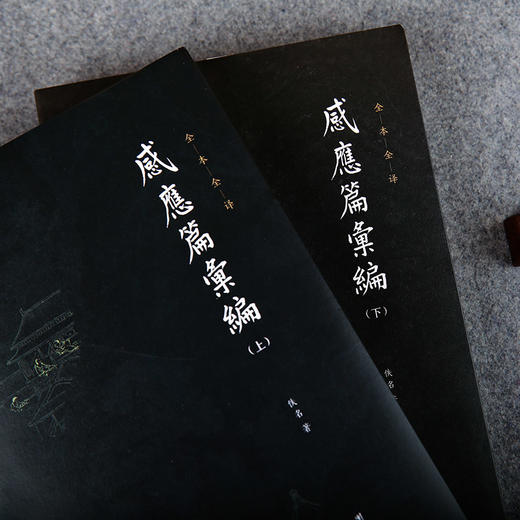 全本全译
感應篇彙編
(上)
佚名著
全本全译
感應篇彙編
(下)
佚名